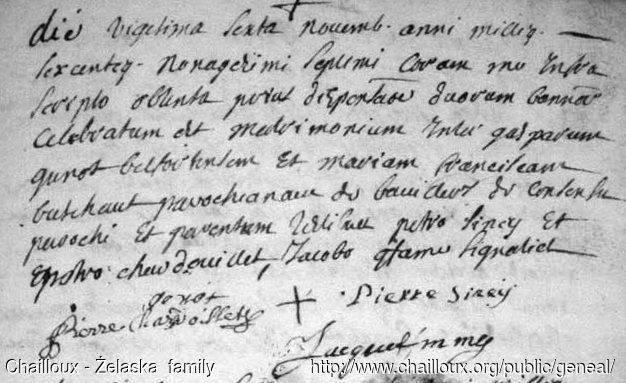 die vigesima sexta novemb. anni milles.
sexcentes. nonagesimi septimi coram me infra
scripto obtenta prius dispentaoe duorum bannor
celebratum est matrimonium inter gasparum
gunot belfortensem et mariam franciscam
butchaut parochianam de bauillers de consensu
parochi et parentum testibus petro sirey et
petro chardouillet, Jacobo signatis
gonot
Pierre Chardoillet + Pierre Sirey
Jacque
Chailloux - Żelaska family http://www.chailloux.org/public/geneal/